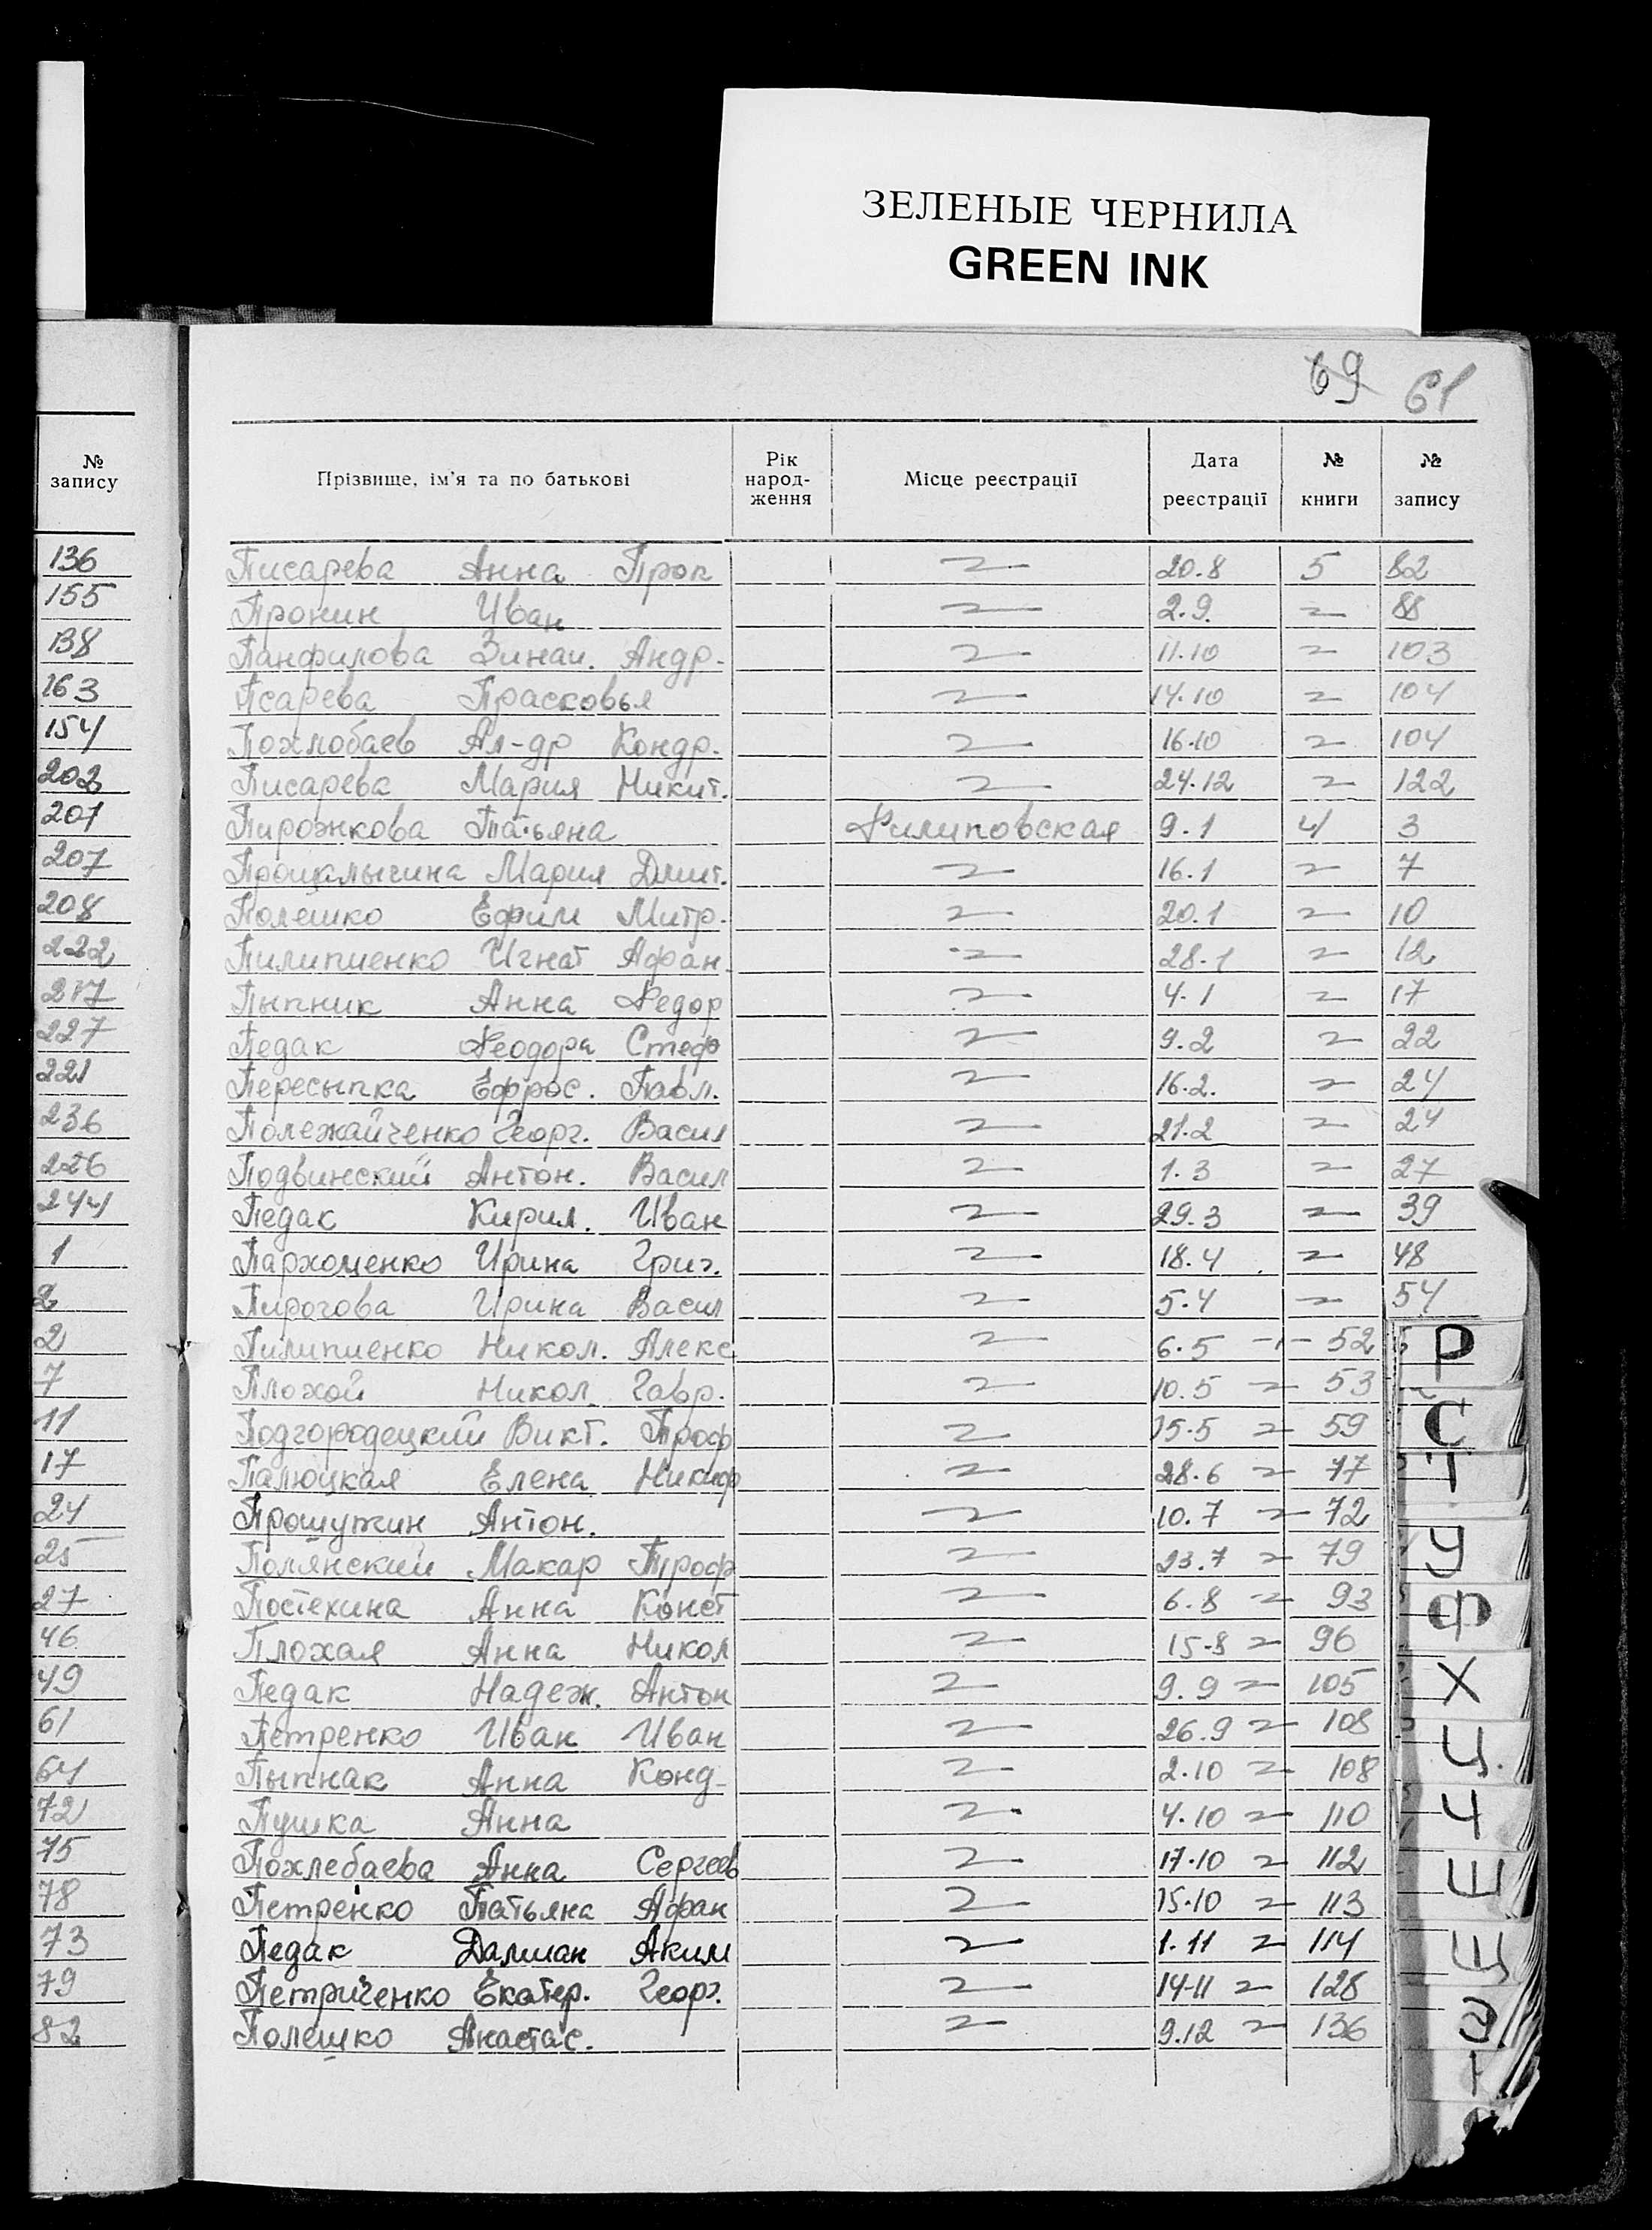 ЗЕЛЕНЫЕ ЧЕРНИЛА
GREEN INK
69 61
№ запису
136
155
138
163
154
202
207
207
208
222
217
227
221
236
226
244
1
2
2
7
11
17
24
25
27
46
49
61
64
72
75
78
73
79
82
Прізвище, ім'я та по батькові Рік народ-ження Місце реєстрації Дата реєстрації № книги № запису
Писарева Анна Проп 〃 20.8 5 82
Пронин Иван 〃 2.9. 〃 88
Панфилова Зинаи. Андр. 〃 11.10 〃 103
Псарева Прасковья 〃 14.10 〃 104
Похлобаев Ал-др Кондр. 〃 16.10 〃 104
Писарева Мария Никит. 〃 24.12 〃 122
Пирожкова Татьяна Филиповская 9.1 4 3
Мария Дмит. 〃 16.1 〃 7
Полешко Ефим Митр. 〃 20.1 〃 10
Пилипиенко Игнат Афан. 〃 28.1 〃 12
Пыпник Анна Федор 〃 4.1 〃 17
Педак Феодора Стеф 〃 9.2 〃 22
Пересыпка Ефрос. Павл. 〃 16.2. 〃 24
Полежайченко Георг. Васил 〃 21.2 〃 24
Подвинский Антон. Васил 〃 1.3 〃 27
Педак Кирил. Иван 〃 29.3 〃 39
Пархоменко Ирина Григ. 〃 18.4 〃 48
Пирогова Ирина Васил 〃 5.4 〃 54
Пилипиенко Никол. Алекс. 〃 6.5 -〃- 52
Плохой Никол. Гавр. 〃 10.5 〃 53
Подгородецкий Викт. Троф 〃 15.5 〃 59
Палюцкая Елена Никиф 〃 28.6 〃 77
Прошутин Антон. 〃 10.7 〃 72
Полянский Макар Троф 〃 23.7 〃 79
Постехина Анна Конст 〃 6.8 〃 93
Плохая Анна Никол 〃 15.8 〃 96
Педак Надеж. Антон 〃 9.9 〃 105
Петренко Иван Иван 〃 26.9 〃 108
Пыпнак Анна Конд 〃 2.10 〃 108
Пушка Анна 〃 4.10 〃 110
Похлебаева Анна Сергеев 〃 17.10 〃 112
Петренко Татьяна Афан 〃 15.10 〃 113
Педак Далман Аким 〃 1.11 〃 114
Петриченко Екатер. Георг. 〃 14.11 〃 128
Полешко Анастас. 〃 9.12 〃 136
Р
С
Т
У
Ф
Х
Ц
Ч
Ш
Щ
Э